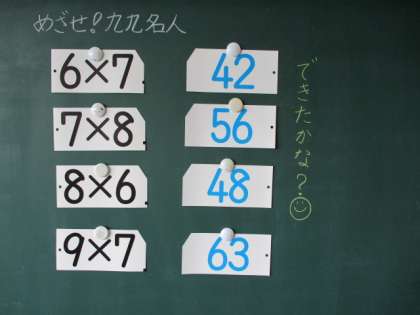 めざせ!九九名人
6×7 42
7×8 56
8×6 48
9×7 63
できたかな?